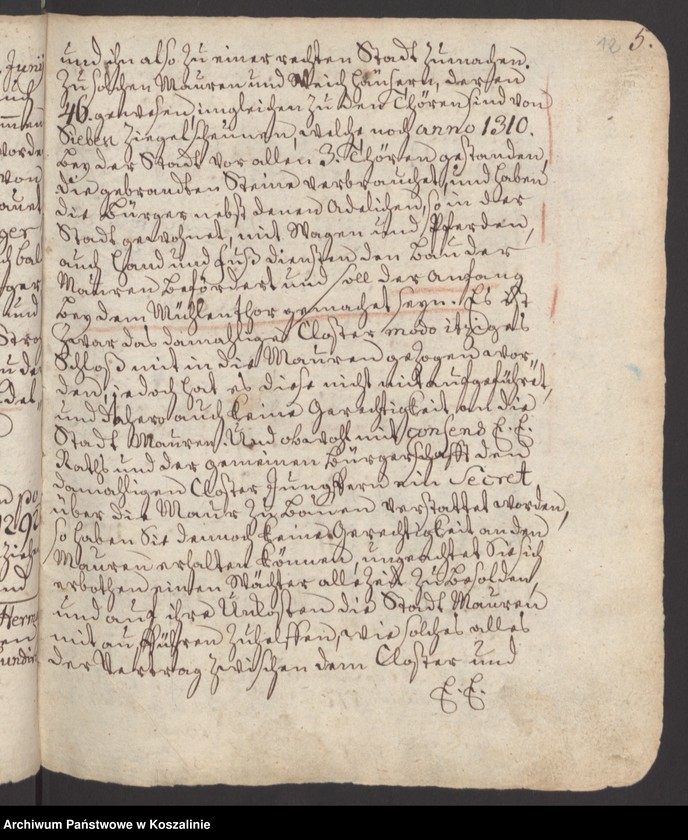 12 5.
und ihn also zu einer rechten Stadt zumachen.
Zu solchen Mauren und Weichhäusern, deren
46. gewesen, imgleichen zu den Thören sind von
Sieben Ziegelscheunen, welche noch anno 1310.
bey der Stadt vor allen 3. Thören gestanden,
die gebrandten Steine verbrauchet, und haben
die Bürger nebst denen Adelichen, so in der
Stadt gewohnet, mit Wagen und Pferden,
auch Hand und Fuß diensten den Bau der
Mauren befördert und soll der Anfang
bey dem Mühlenthor gemachet seyn. Es ist
zwar das damahlige Closter modo itziges
Schloß mit in die Mauren gezogen wor„
den, jedoch hat es diese nicht mit aufgeführet,
und dahero auch keine Gerechtigkeit an die
Stadt Mauren. Und obwohl mit consens E. E.
Raths und der gemeinen Bürgerschafft den
damahligen Closter Jungffern ein Secret,
über die Maur zu bauen verstattet worden,
so haben Sie dennoch keine Gerechtigkeit an den
Mauren erhalten können, ungeachtet Sie sich
erbothen einen Wächter allezeit zu besolden,
und auf ihre Unkosten die Stadt Mauren
mit auf führen zuhelffen, wie solches alles
der Vertrag zwischen dem Closter und
E. E.
Junij
und
worden
von
ger
und
Stra
1292
ziehe
und
Herrn
Archiwum Państwowe w Koszalinie